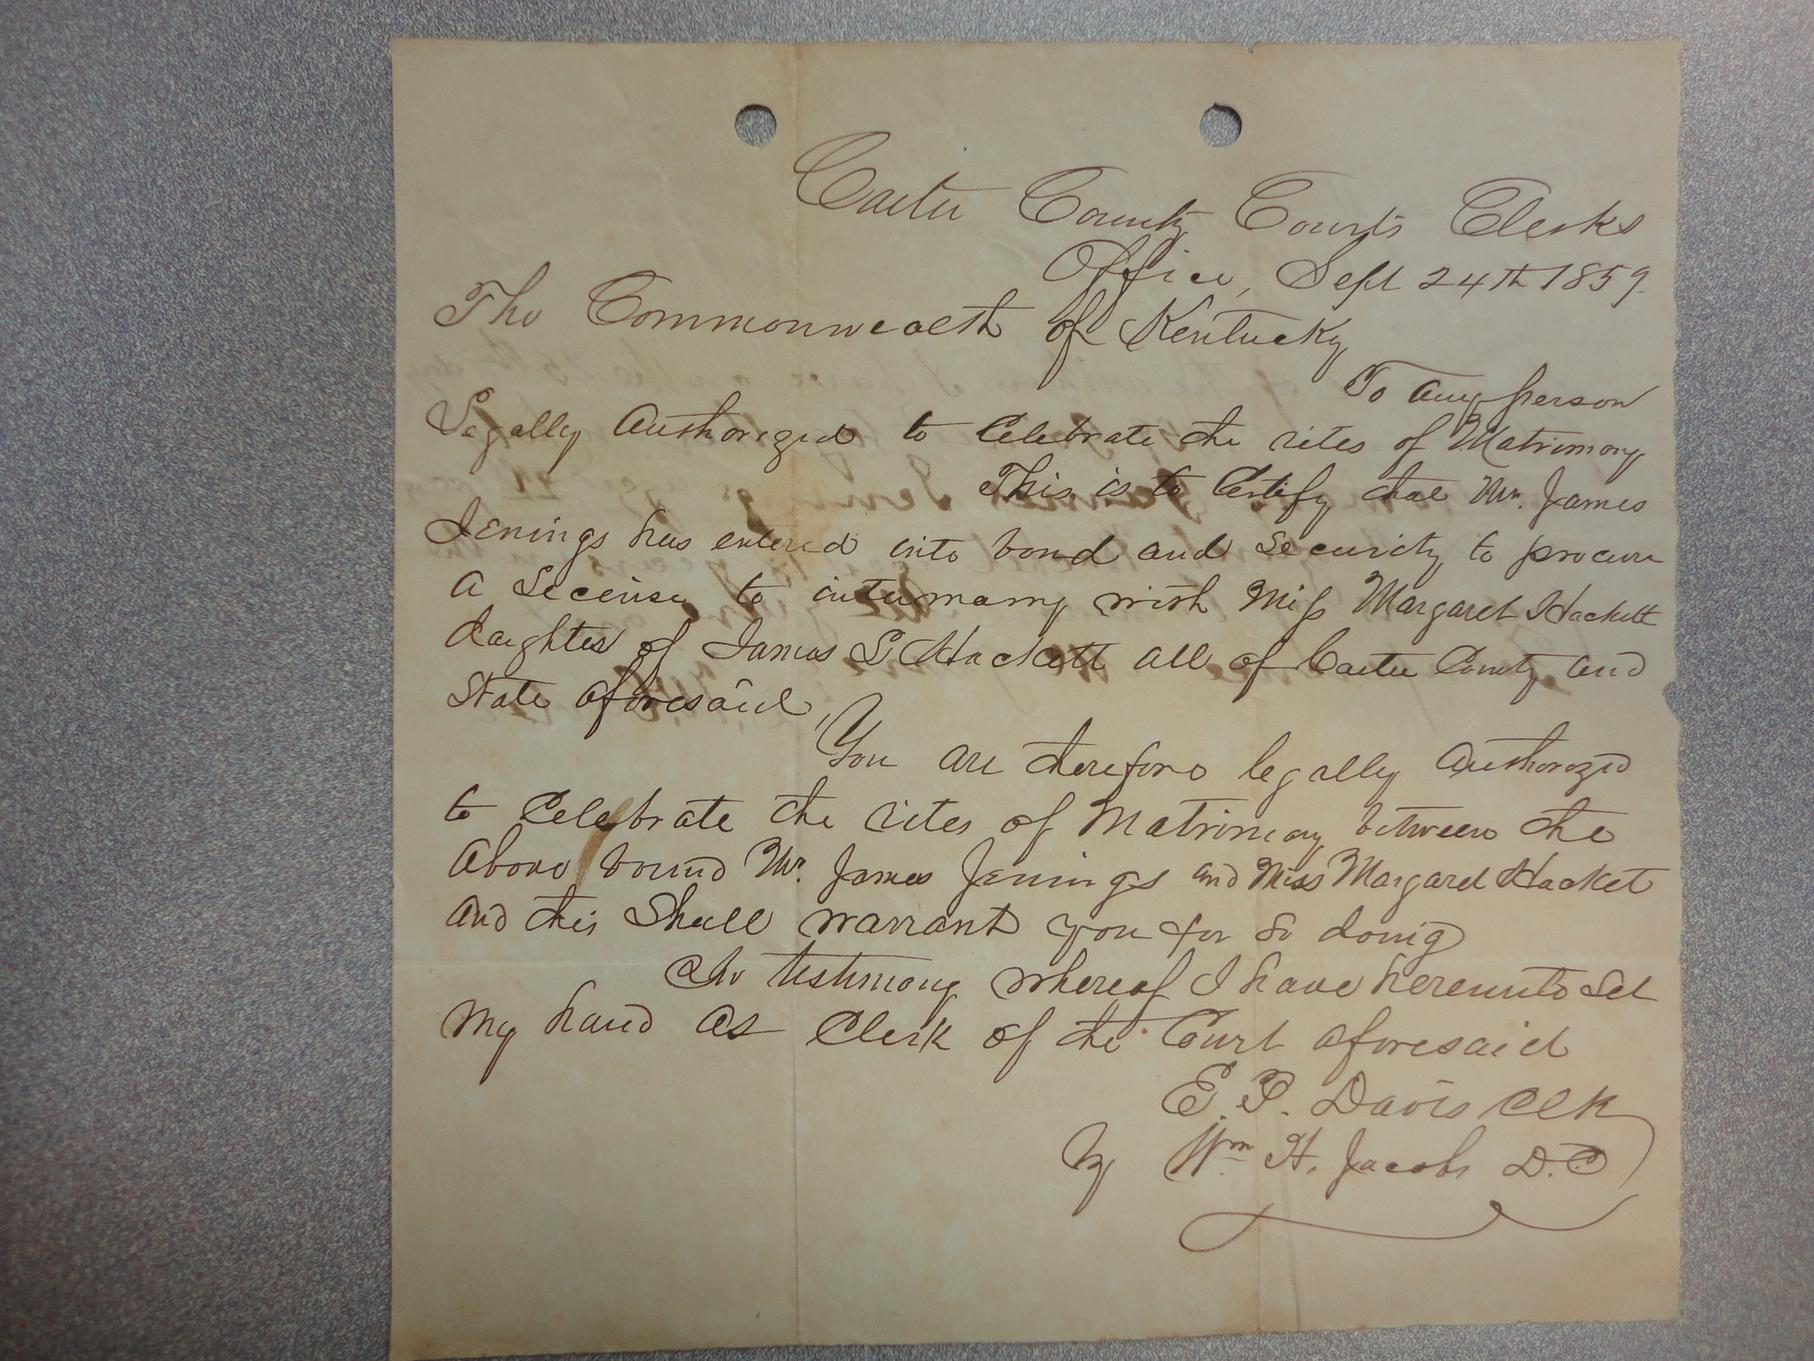 Carter County Courts Clerks
Office, Sept 24th 1859.
The Commonwealth of Kentucky
To any person
Legally Authorized to Celebrate the rites of Matrimony
This is to Certify that Mr. James
Jenings has entered into bond and security to procure
a License to intermarry with Miss Margaret Hackett
daughter of James S Hackett all of Carter County and
State aforesaid,
You are therefore legally Authorized
to Celebrate the rites of Matrimony between the
above bound Mr. James Jenings and Miss Margaret Hacket
and this Shall warrant you for so doing
In testimony whereof I have hereunto Set
my hand as Clerk of the Court aforesaid
E. P. Davis Clk
by Wm H. Jacobs D.C